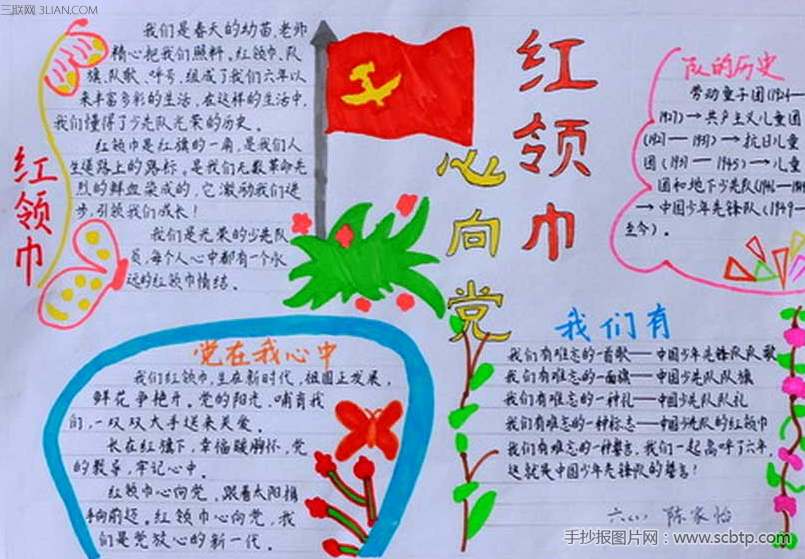 三联网 3LIAN.COM
红领巾
我们是春天的幼苗,老师
精心把我们照料。红领巾、队
旗、队歌、呼号,组成了我们六年以
来丰富多彩的生活,在这样的生活中,
我们懂得了少先队光荣的历史。
红领巾是红旗的一角,是我们人
生道路上的路标。是我们无数革命先
烈的鲜血染成的,它激励我们进
步,引领我们成长!
我们是光荣的少先队
员,每个人心中都有一个永
远的红领巾情结。
红领巾
心向党
队的历史
劳动童子团(1924—
1927)→共产主义儿童团
(1927—1937)→抗日儿童
团(1937—1945)→儿童
团和地下少先队(1946—1949
→中国少年先锋队(1949—
至今)。
党在我心中
我们红领巾,生在新时代,祖国正发展,
鲜花争艳开。党的阳光,哺育我
们,一双双大手送来关爱。
长在红旗下,幸福暖胸怀,党
的教导,牢记心中。
红领巾心向党,跟着太阳指
向前迈。红领巾心向党,我
们是党放心的新一代。
我们有
我们有难忘的一首歌——中国少年先锋队队歌
我们有难忘的一面旗——中国少先队队旗
我们有难忘的一种礼——中国少先队队礼
我们有难忘的一种标志——中国少先队的红领巾
我们有难忘的一种誓言,我们一起高呼了六年,
这就是中国少年先锋队的誓言!
六(1) 陈家怡
手抄报图片网:www.scbtp.com